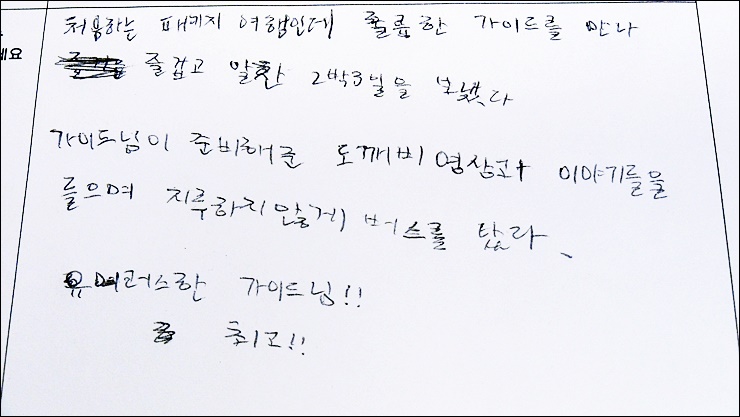 처음하는 패키지 여행인데 훌륭한 가이드를 만나
즐겁고 알찬 2박3일을 보냈다
가이드님이 준비해준 도깨비 영상과 이야기들을
들으며 지루하지않게 버스를 탔다.
유머러스한 가이드님!!
최고!!